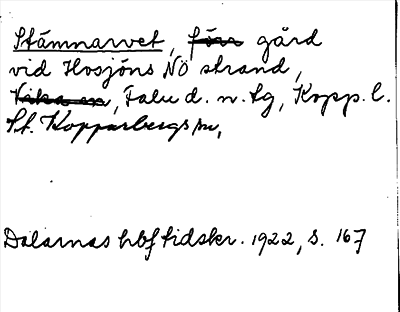 Stämmarvet, förr gård
vid Hosjöns NÖ strand,
Vika sn, Falu d. n. tg, Kopp. l.
St. Kopparbergs sn,
Dalarnas hbf tidskr. 1922, s. 167